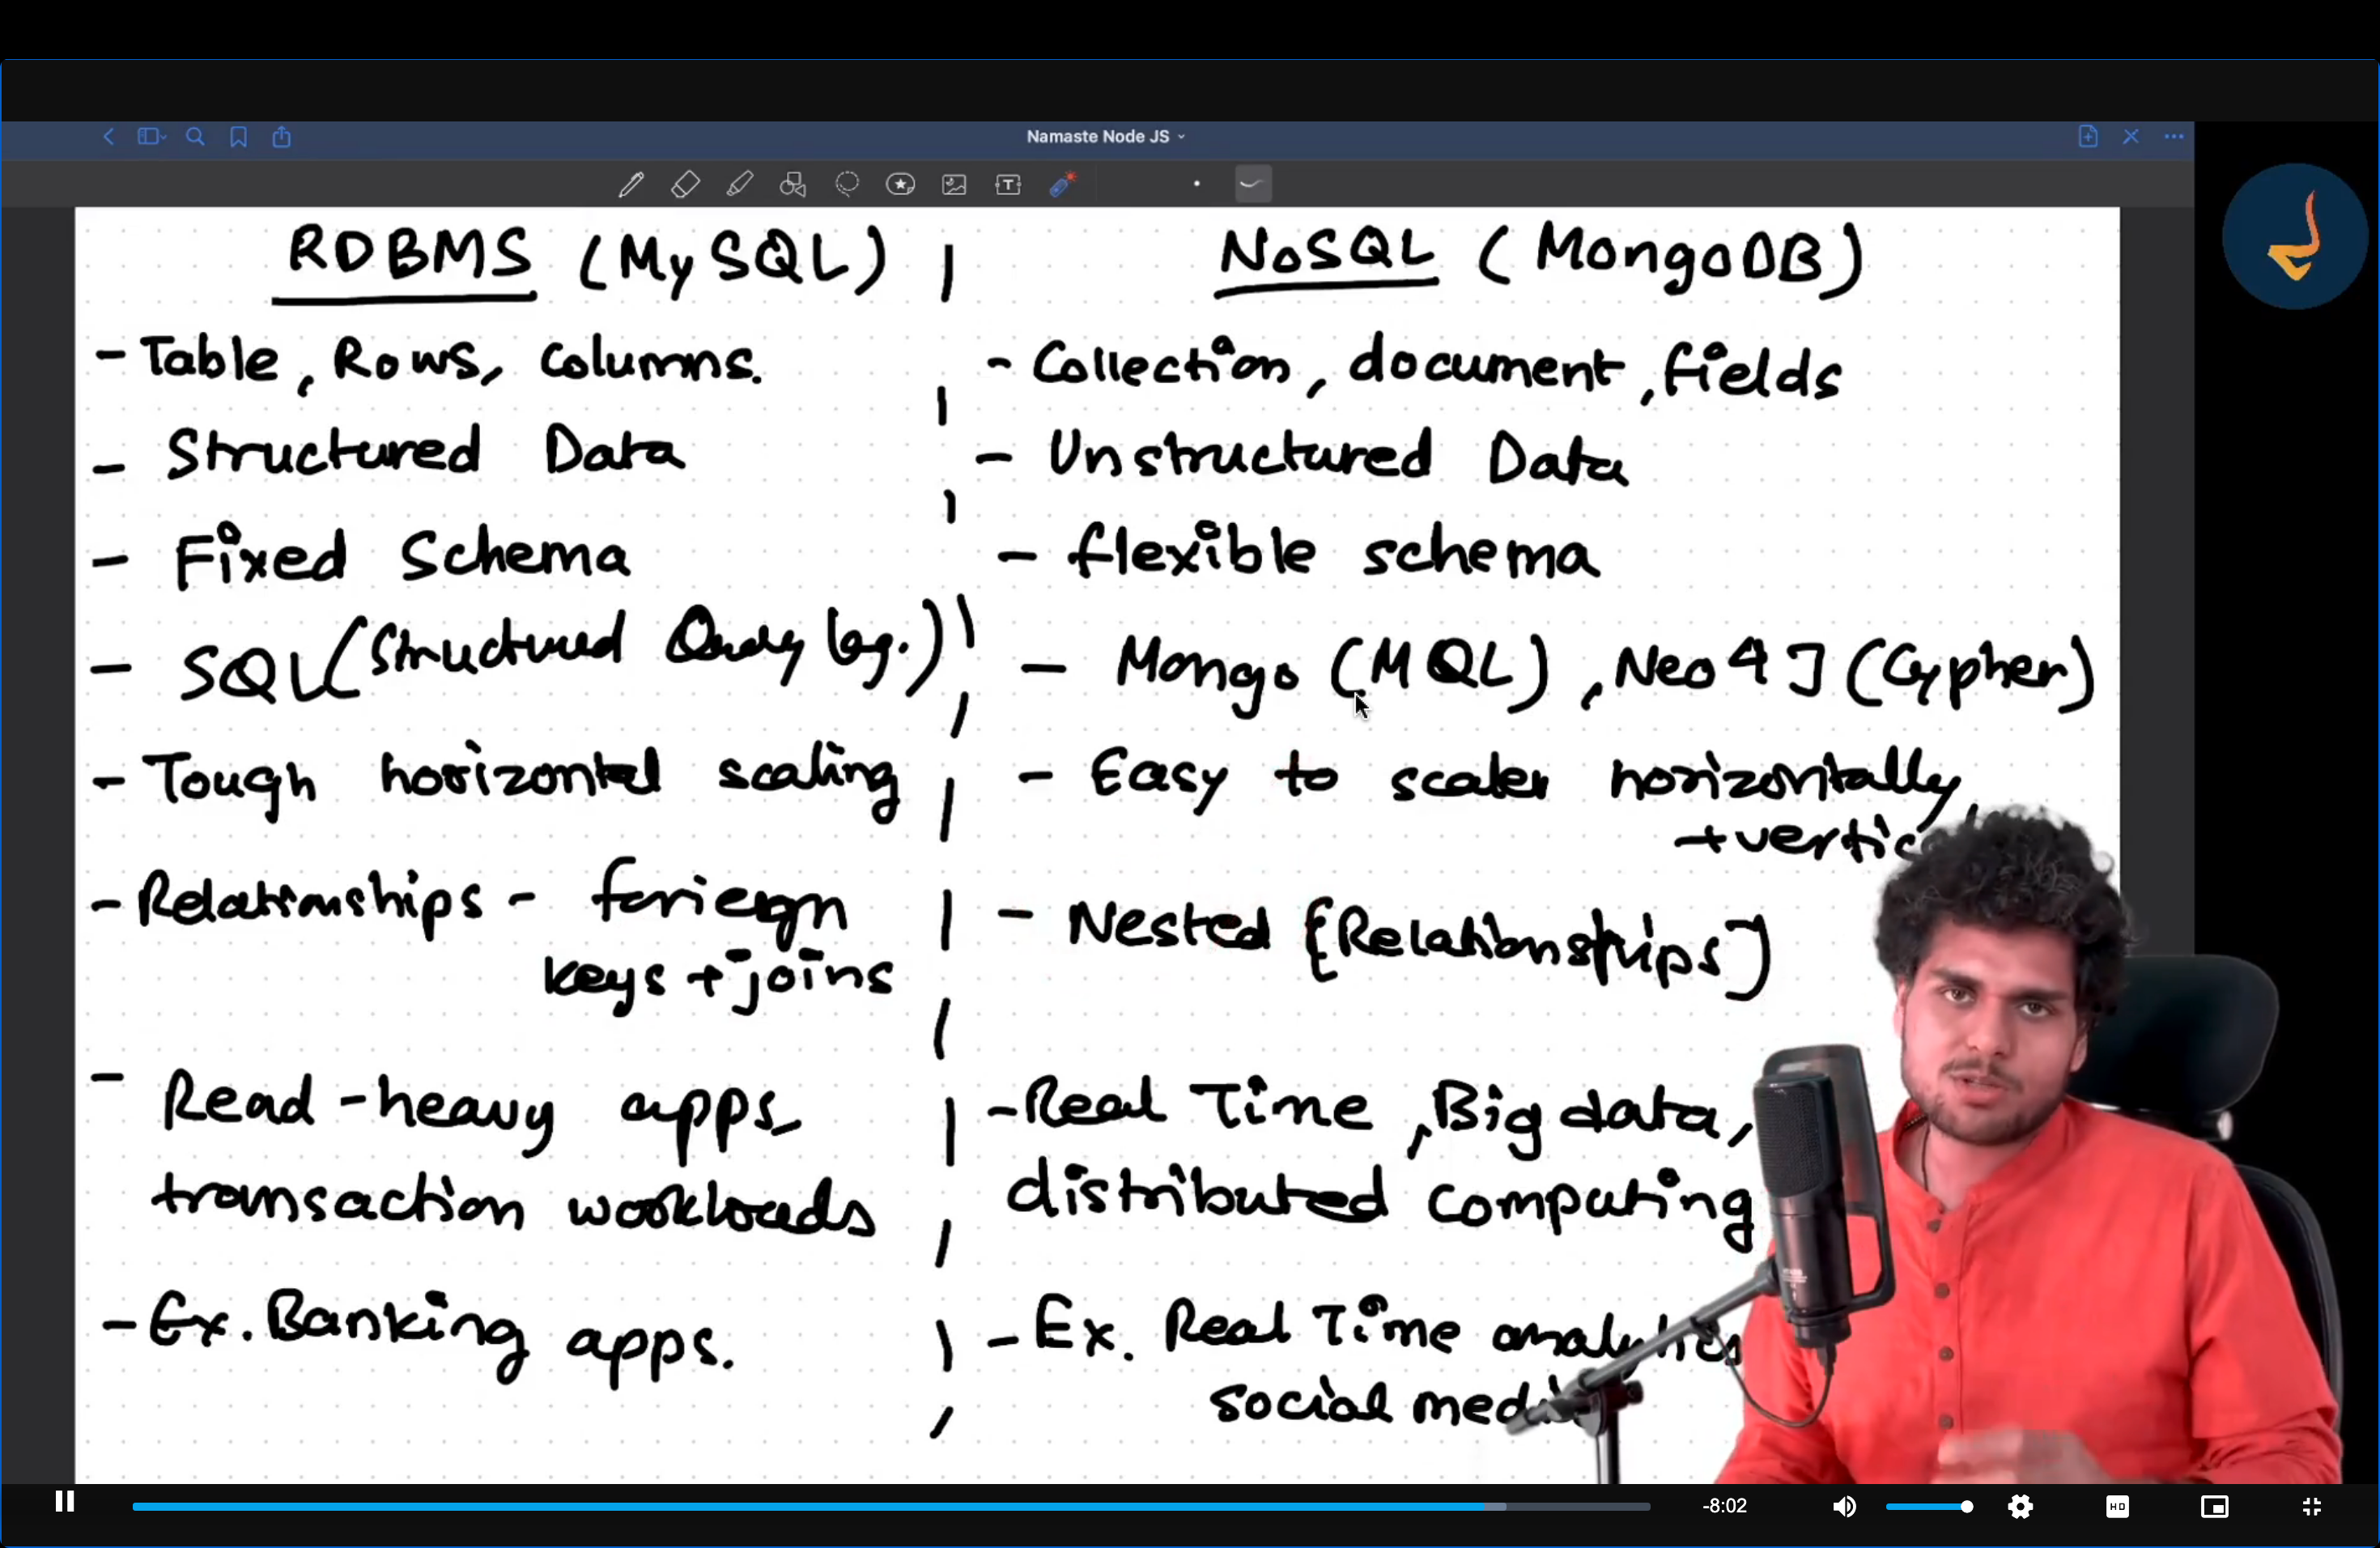 Namaste Node JS
RDBMS (MySQL)
- Table, Rows, Columns.
- Structured Data
- Fixed Schema
- SQL (Structured Query lag.)
- Tough horizontal scaling
- Relationships - foriegn
keys + joins
- Read-heavy apps
transaction workloads
- Ex. Banking apps.
NoSQL (MongoDB)
- Collection, document, fields
- Unstructured Data
- flexible schema
- Mongo (MQL), Neo4J (Cypher)
- Easy to scaler horizontally
+
- Nested [Relationships]
- Real Time, Big data,
distributed computing
- Ex. Real Time analytics
social
-8:02
HD